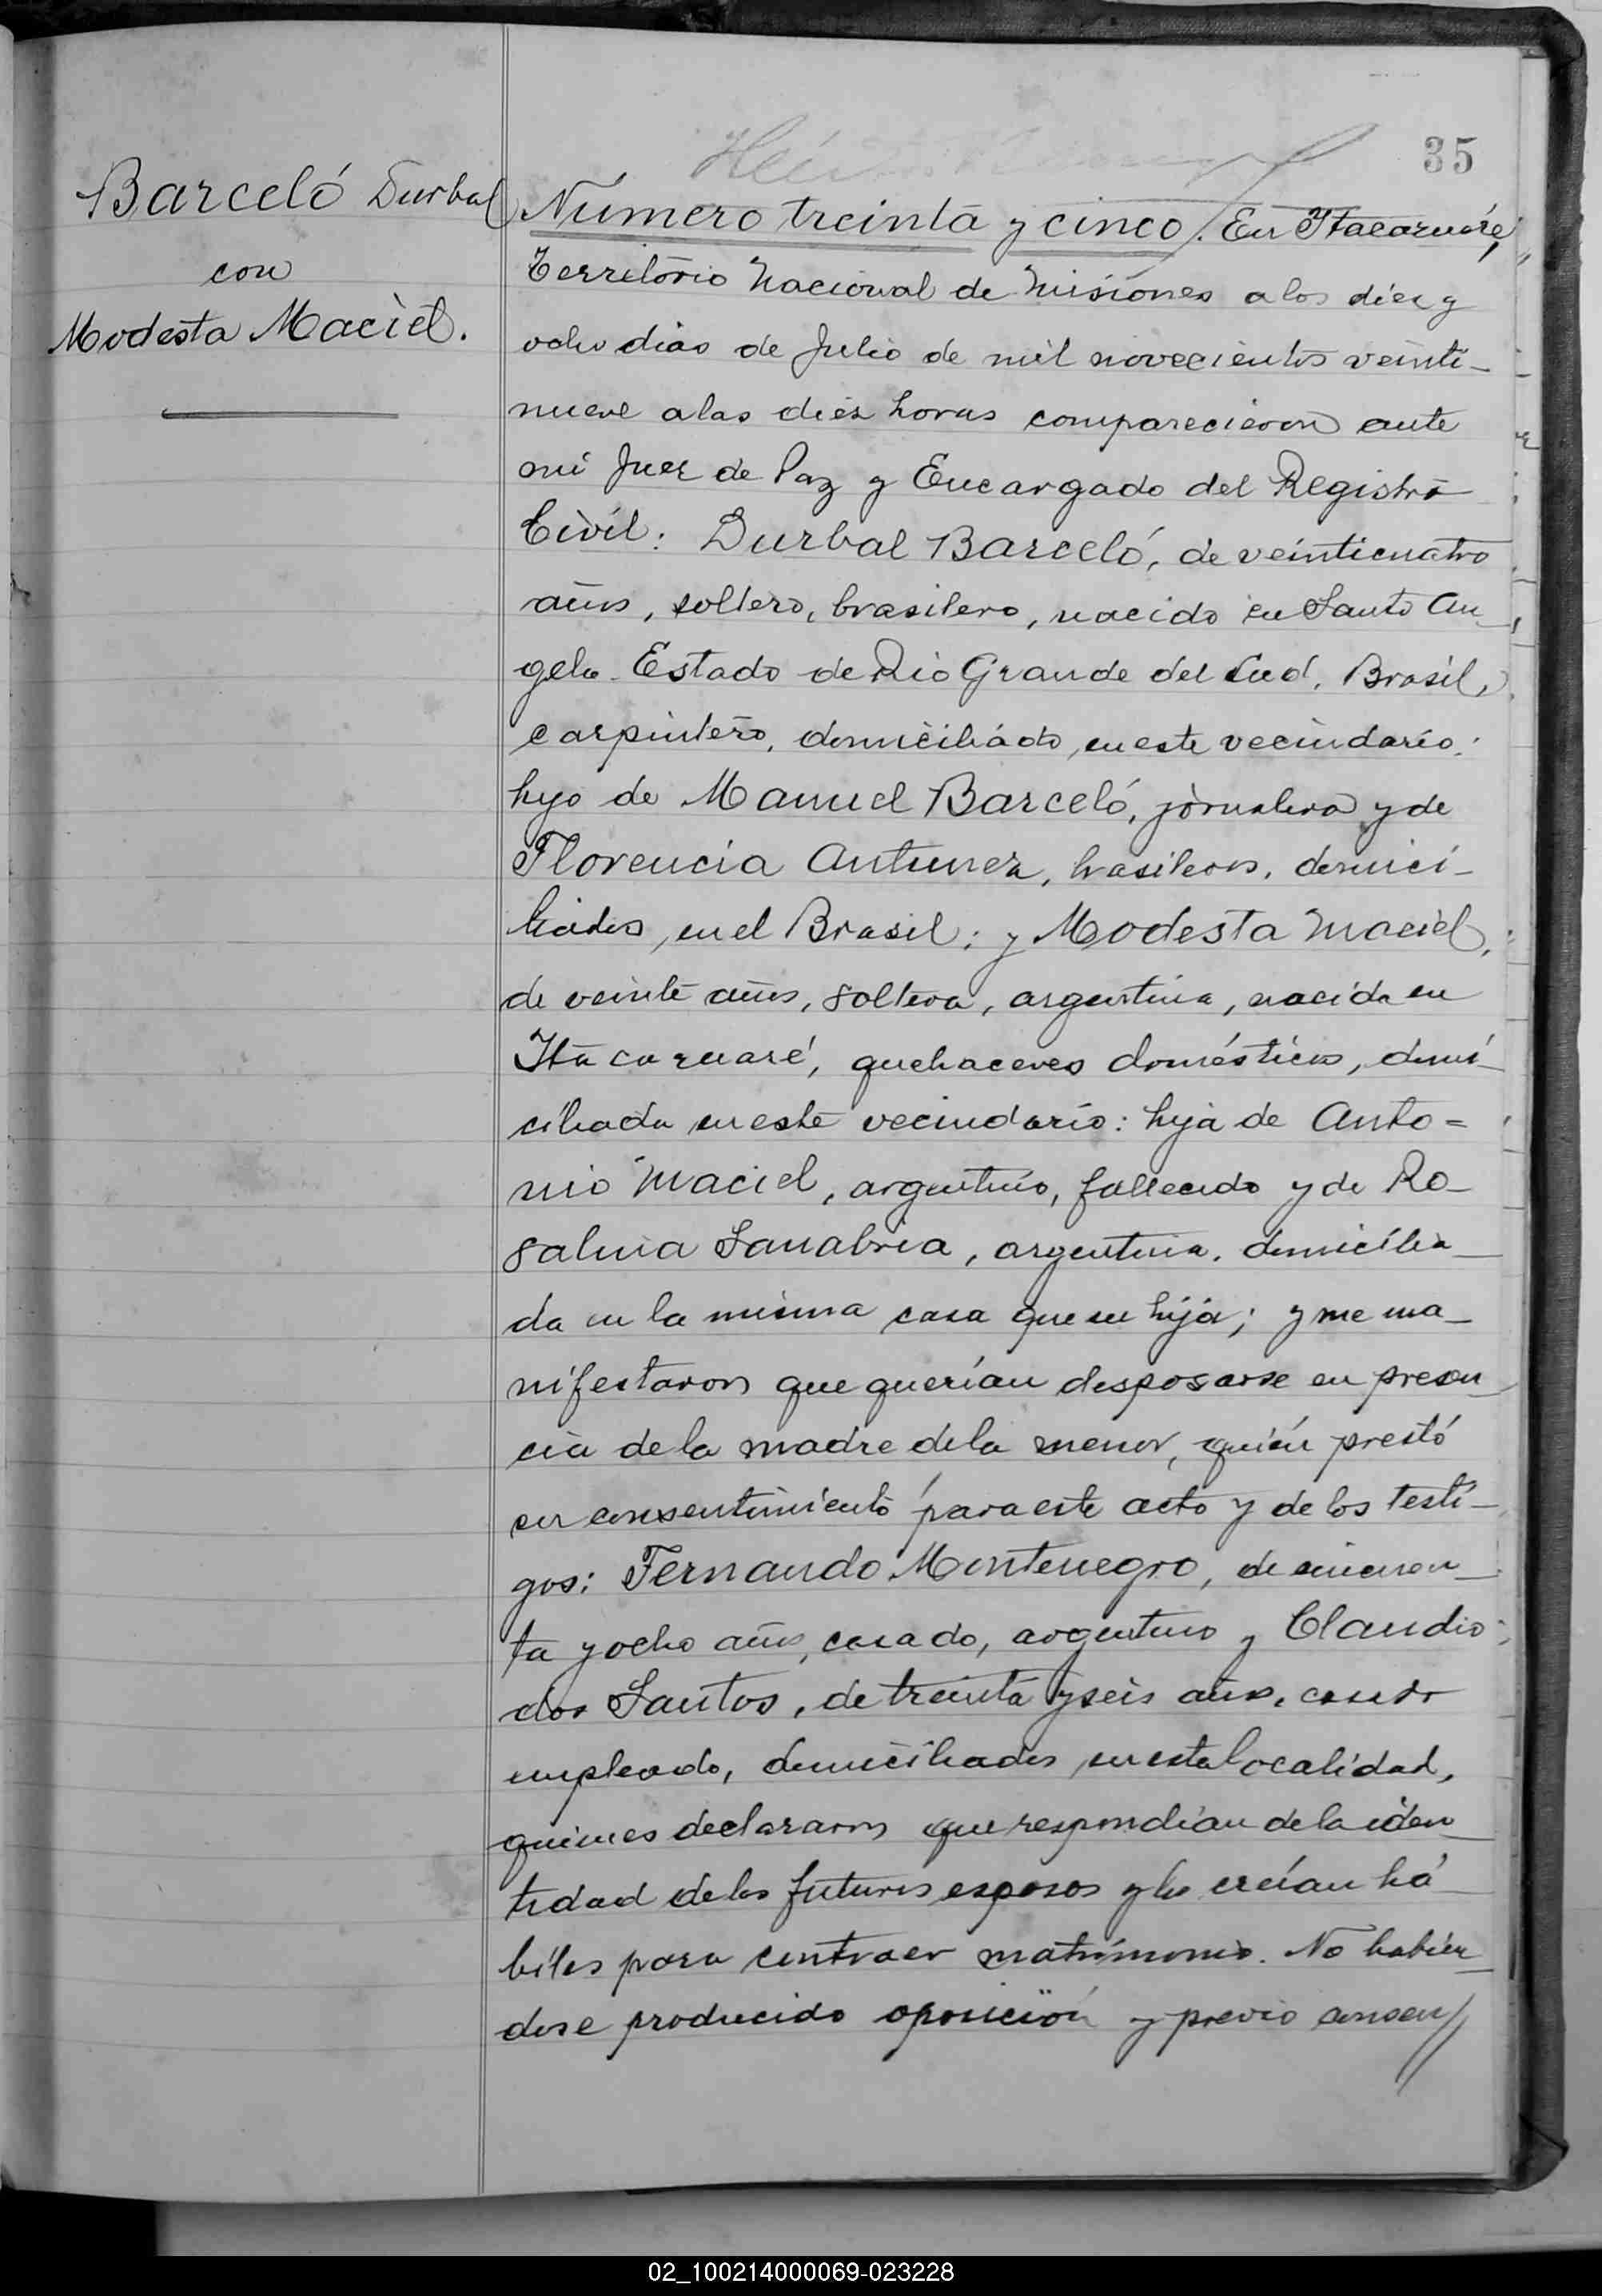 35
Barceló Durbal
con
Modesta Maciel.
Número treinta y cinco. En Itacaruaré,
Territorio Nacional de Misiones a los diez y
ocho dias de Julio de mil novecientos veinti-
nueve a las diez horas comparecieron ante
mi Juez de Paz y Encargado del Registro
Civil: Durbal Barceló, de veinticuatro
años, soltero, brasilero, nacido en Santo An-
gelo Estado de Rio Grande del Sud, Brasil,
carpintero, domiciliado, en este vecindario:
hijo de Manuel Barceló, jornalero y de
Florencia Antunez, brasileros, domici-
liados, en el Brasil; y Modesta Maciel,
de veinte años, soltera, argentina, nacida en
Itacaruaré, quehaceres domésticos, domi-
ciliada en este vecindario: hija de Anto=
nio Maciel, argentino, fallecido y de Ro-
salina Sanabria, argentina, domicilia-
da en la misma casa que su hija; y me ma-
nifestaron que querían desposarse en presen-
cia de la madre de la menor, quién prestó
su consentimiento para este acto y de los testi-
gos: Fernando Montenegro, de cincuen-
ta y ocho años, casado, argentino y Claudio
dos Santos, de treinta y seis años, casado
empleado, domiciliados en esta localidad,
quienes declararon que respondían de la iden-
tidad de los futuros esposos y los creían há
biles para contraer matrimonio. No habién-
dose producido oposición y previo consen//
02_100214000069-023228